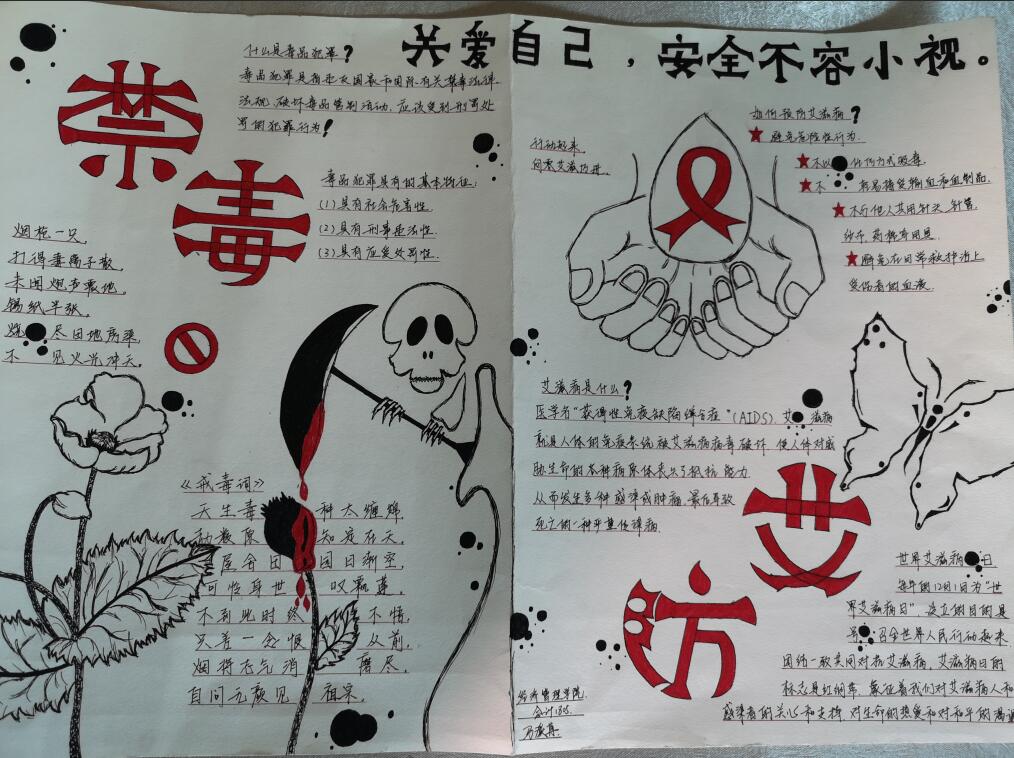 关爱自己，安全不容小视。
禁
毒
什么是毒品犯罪？
毒品犯罪是指违反国家和国际有关禁毒法律、
法规、破坏毒品管制活动，应该受到刑罚处
罚的犯罪行为！
毒品犯罪具有的基本特征：
(1)具有社会危害性.
(2)具有刑事违法性.
(3)具有应受处罚性.
烟枪一只，
打得妻离子散，
未闻炮声震地，
锡纸半张，
烧 尽田地房梁，
不 见火光冲天。
《戒毒词》
天生毒 种太缠绵
劫数原 知定在天，
屋分团 国日渐空，
可怜身世 叹飘蓬，
不到此时终 不悟，
只差一念恨 从前，
烟将志气消 磨尽，
自问无颜见 祖宗。
行动起来，
向零艾滋迈进.
如何预防艾滋病？
避免危险性行为.
不以 任何方式吸毒.
不 轻易接受输血和血制品.
不与他人共用针头、针管、
纱布、药棉等用具.
避免在日常救护沾上
受伤者的血液.
艾滋病是什么？
医学名“获得性免疫缺陷综合症”(AIDS)，艾 滋病
就是人体的免疫系统被艾滋病病毒破坏，使人体对威
胁生命的各种病原体丧失了抵抗能力
从而发生多种感染或肿瘤，最后导致
死亡的一种严重传染病.
艾
防
世界艾滋病 日
每年的12月1日为“世
界艾滋病日”，设立的目的是
号 召全世界人民行动起来
团结一致共同对抗艾滋病，艾滋病日的
标志是红绸带，象征着我们对艾滋病人和
感染者的关心和支持，对生命的热爱和对和平的渴望
经济管理学院